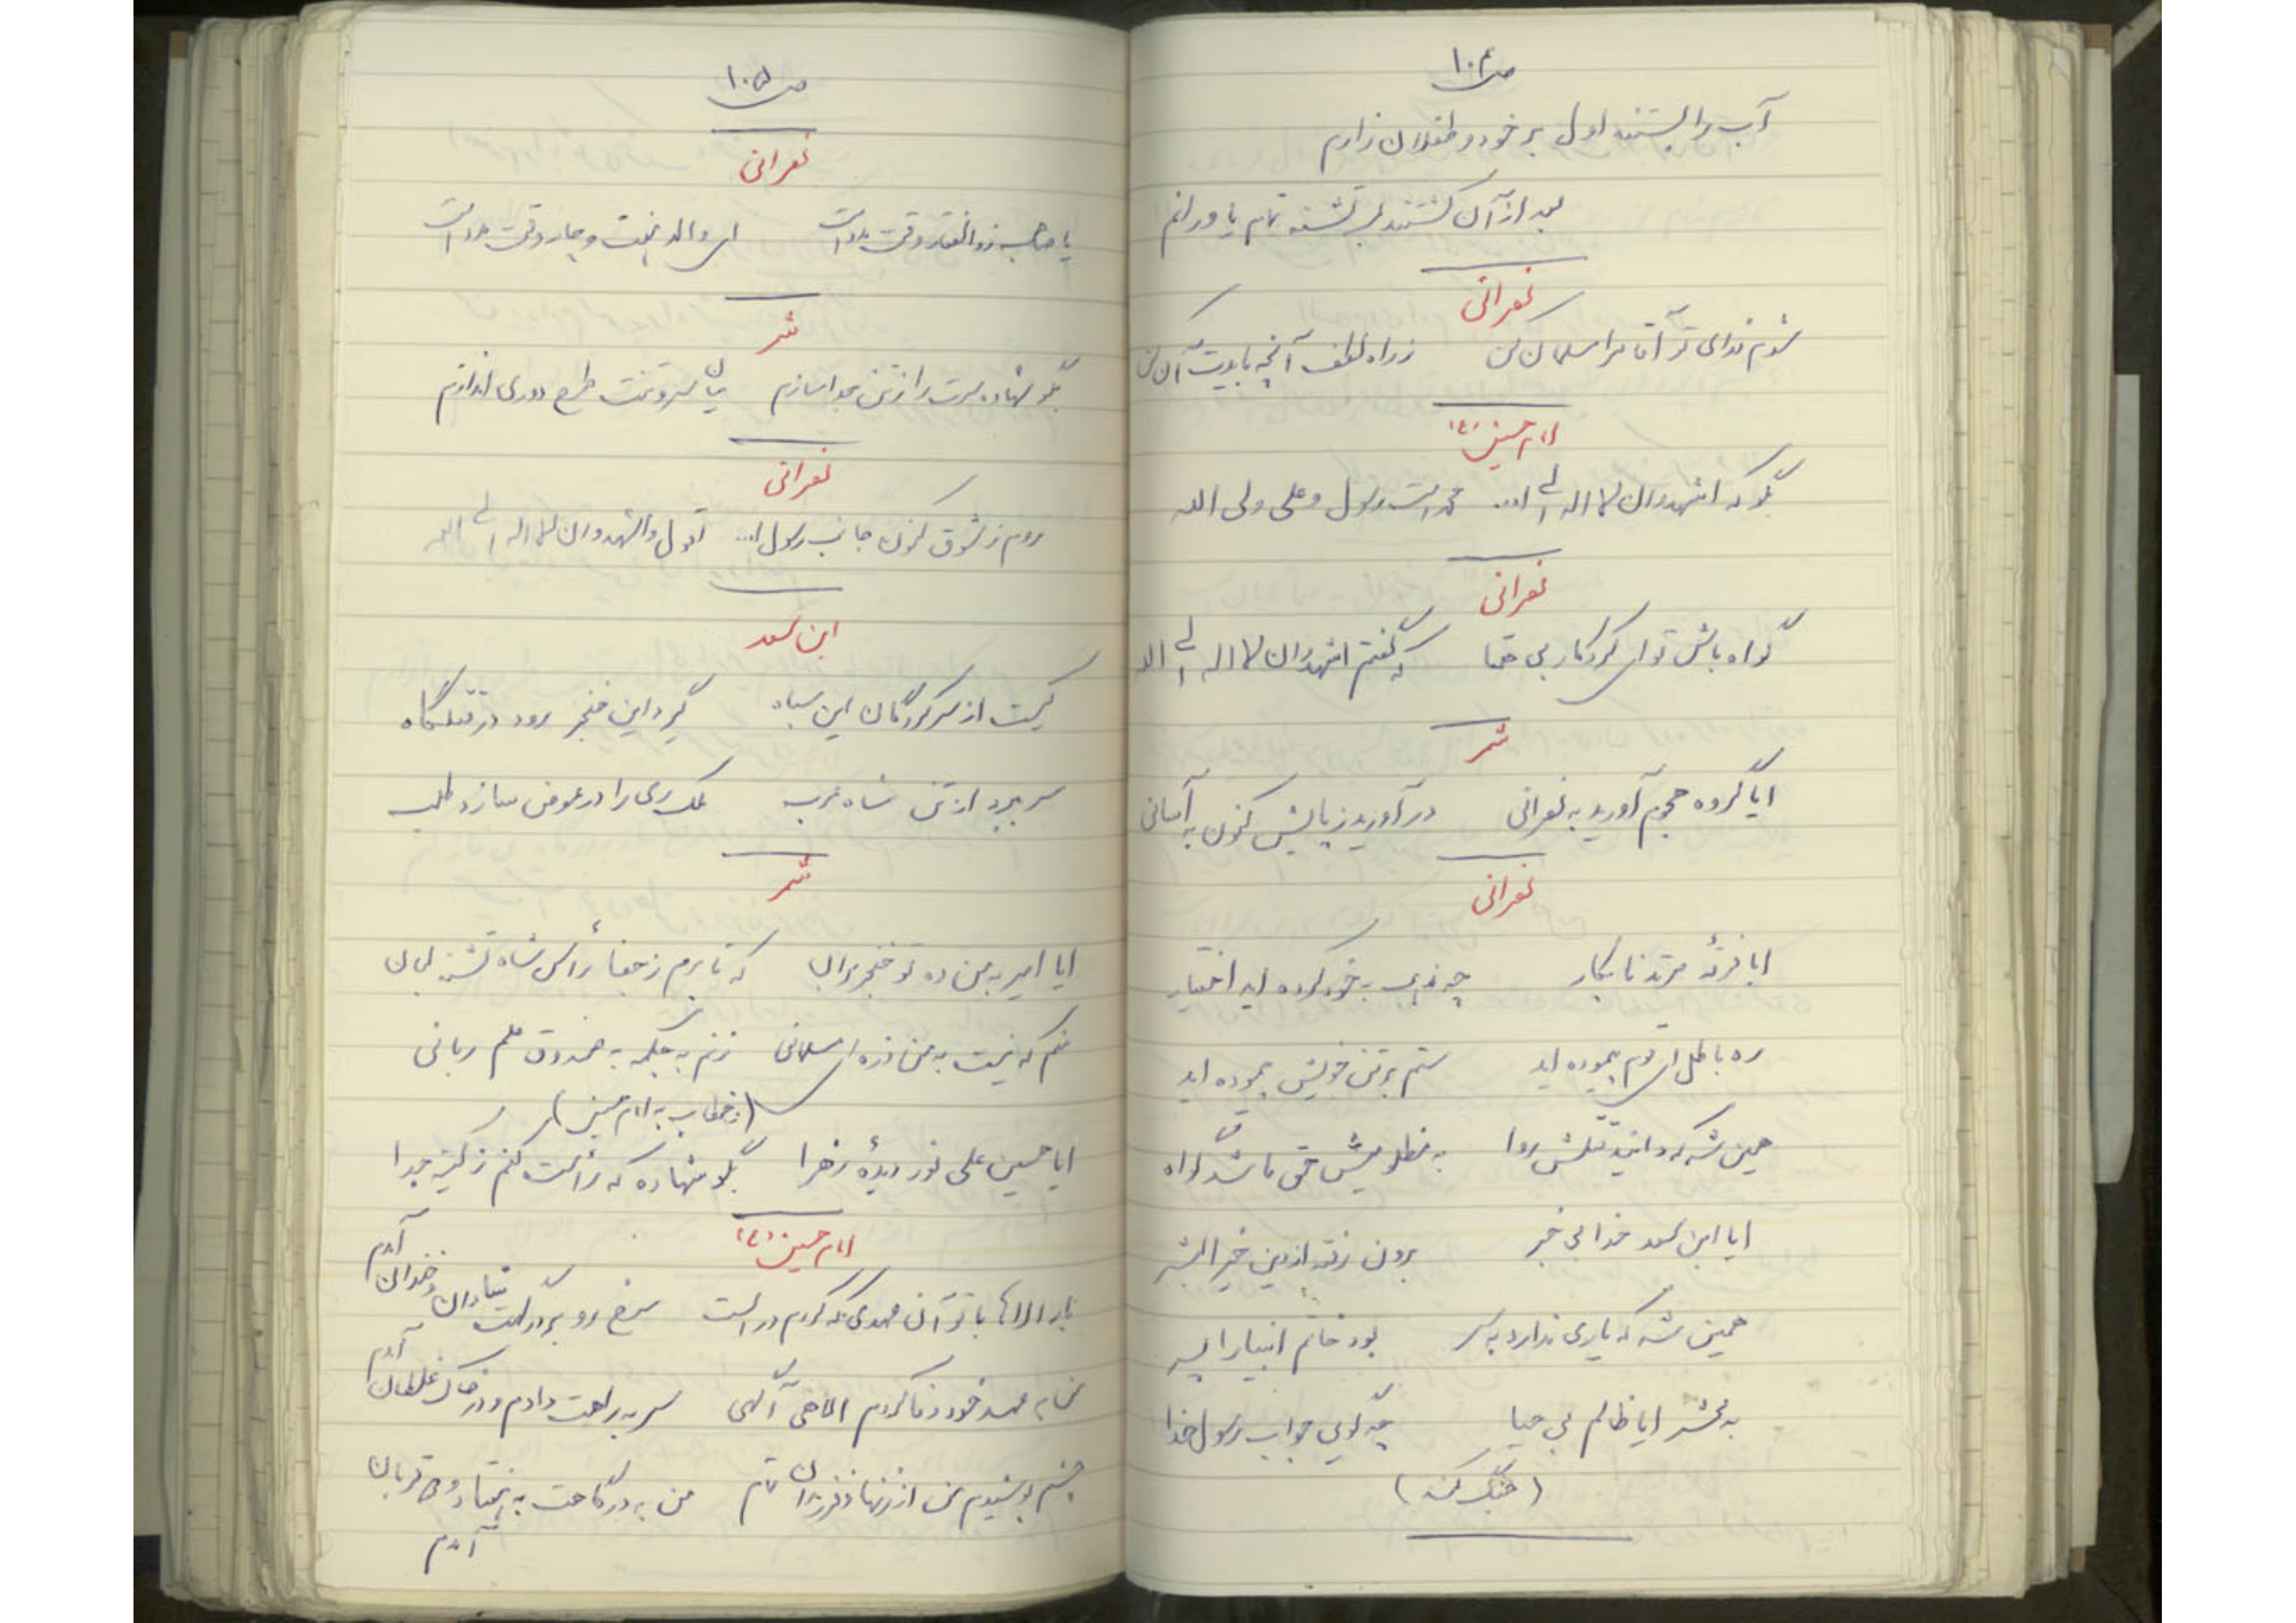 ص ۱۰۴
آب را بستند اول بر خود و طفلان زارم
بعد از آن کشتند لب تشنه تمام یاورانم
نصرانی
شوم فدای تو آقا مرا مسلمان کن
ز راه لطف آنچه بایدت آن کن
امام حسین (ع)
بگو که اشهد ان لا اله الی ا... محمد است رسول و علی ولی الله
نصرانی
گواه باش تو ای کردگار بی همتا که گفتم اشهد ان لا اله الی الله
شمر
ایا گروه هجوم آورید به نصرانی در آورید ز پایش کنون به آسانی
نصرانی
ایا فرقهٔ مرتد نابکار چه مذهب به خود کرده اید اختیار
ره باطل ای قوم پیموده اید ستم بر تن خویش بنموده اید
همین شه که دانید قتلش روا به مظلومیش حق باشد گواه
ایا ابن سعد خدا بی خبر برون رفته از دین خیر البشر
همین شه که یاری ندارد به سر بود خاتم انبیا را پسر
به محشر ایا ظالم بی حیا چه گویی جواب رسول خدا
(جنگ کند)
ص ۱۰۵
نصرانی
یا صاحب ذوالفقار وقت مدد است ای والد هشت و چار وقت مدد است
شمر
بگو شهاده سرت را ز تن جدا سازم میان سر و تنت طرح دوری اندازم
نصرانی
روم ز شوق کنون جانب رسول ا... اقول و اشهد و ان لا اله الی الله
ابن سعد
کیست از سرکردگان این سپاه گیرد این خنجر رود در قتلگاه
سر برد از تن شاه عرب ملک ری را در عوض سازد طلب
شمر
ایا امیر به من ده تو خنجر بران که تا برم ز جفا رأس شاه تشنه لبان
منم که نیست به من ذره ای مسلمانی زنم به چکمه به صندوق علم ربانی
(خطاب به امام حسین)
ایا حسین علی نور دیدهٔ زهرا بگو شهاده که رأست کنم ز کینه جدا
امام حسین (ع)
بار الاها با تو آن عهدی که کردم در الست سرخ رو بر درگهت شادان و خندان آمدم
من به عهد خود وفا کردم الاهی آگهی سر به راهت دادم و در خاک غلطان آمدم
چشم پوشیدم من از زنها و فرزندان تمام من به درگاهت به هفتاد و دو قربان آمدم